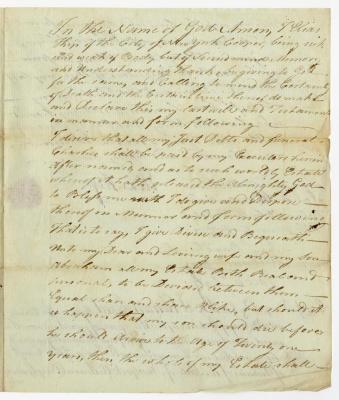 In the Name of God Amen, I Elias
Ship of the City of New York Cooper, being sick
and weak of Body but of Sound mind, Memory
and Understanding thanks be given to God
for the same, and Calling to mind the Certainty
of Death and the time thereof do make
and declare this my last will and Testament
in manner and form following
I desire that all my Just Debts and funeral
Charges shall be paid by my Executors herein
After named, and as to such worldly Estate
wherewith it hath pleased the Almighty God
to Bless me with I do give and Dispose
thereof in Manner and form following
That is to say, I give Devise and Bequeath
unto my Dear and Loving wife and my Son
Abraham all my Estate Both Real and
personal, to be Divided between them
Equal share and share Alike, but should it
so happen that my son should die before
he should Arrive to the Age of Twenty one
years, then the whole of my Estate shall